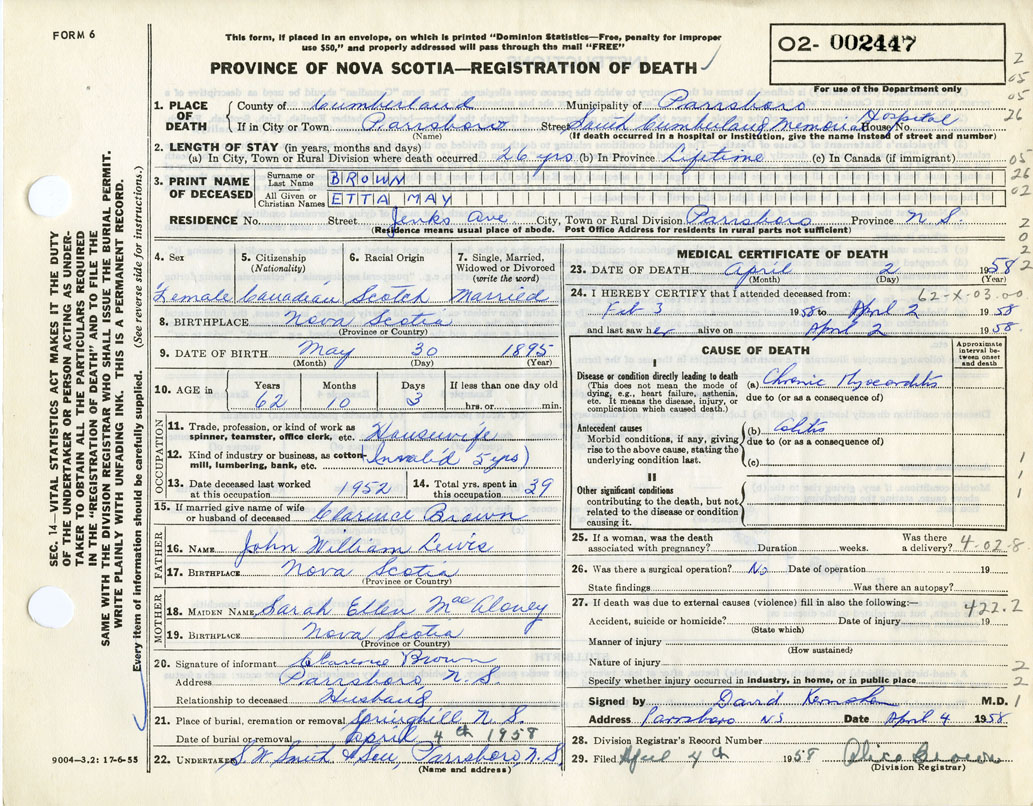 FORM 6
This form, if placed in an envelope, on which is printed "Dominion Statistics—Free, penalty for improper
use $50," and properly addressed will pass through the mail "FREE"
O2- 002447
PROVINCE OF NOVA SCOTIA—REGISTRATION OF DEATH
For use of the Department only
1. PLACE OF DEATH
County of Cumberland Municipality of Parrsboro
If in City or Town Parrsboro Street South Cumberland Memorial Hospital House No.
(Name) (If death occurred in a hospital or institution, give the name instead of street and number)
2. LENGTH OF STAY (in years, months and days)
(a) In City, Town or Rural Division where death occurred 26 yrs. (b) In Province Lifetime (c) In Canada (if immigrant)
3. PRINT NAME OF DECEASED
Surname or Last Name BROWN
All Given or Christian Names ETTA MAY
RESIDENCE No. Street Jenks Ave City, Town or Rural Division Parrsboro Province N S.
(Residence means usual place of abode. Post Office Address for residents in rural parts not sufficient)
4. Sex
Female
5. Citizenship (Nationality)
Canadian
6. Racial Origin
Scotch
7. Single, Married, Widowed or Divorced (write the word)
Married
8. BIRTHPLACE Nova Scotia
(Province or Country)
9. DATE OF BIRTH May 30 1895
(Month) (Day) (Year)
10. AGE in Years 62 Months 10 Days 3 If less than one day old hrs. or min.
OCCUPATION
11. Trade, profession or kind of work as spinner, teamster, office clerk, etc. Housewife
12. Kind of industry or business, as cotton-mill, lumbering, bank, etc. (Invalid 5 yrs)
13. Date deceased last worked at this occupation 1952
14. Total yrs. spent in this occupation 39
15. If married give name of wife or husband of deceased Clarence Brown
FATHER
16. NAME John William Lewis
17. BIRTHPLACE Nova Scotia
(Province or Country)
MOTHER
18. MAIDEN NAME Sarah Ellen MacAloney
19. BIRTHPLACE Nova Scotia
(Province or Country)
20. Signature of informant Clarence Brown
Address Parrsboro N. S.
Relationship to deceased Husband
21. Place of burial, cremation or removal Springhill N. S.
Date of burial or removal April 4th 1958
22. UNDERTAKER S.W. Smith & Son, Parrsboro N.S.
(Name and address)
MEDICAL CERTIFICATE OF DEATH
23. DATE OF DEATH April 2 1958
(Month) (Day) (Year)
24. I HEREBY CERTIFY that I attended deceased from: 62-X-03.00
Feb 3 1958 to April 2 1958
and last saw her alive on April 2 1958.
CAUSE OF DEATH
Approximate interval between onset and death
I
Disease or condition directly leading to death
(This does not mean the mode of dying, e.g., heart failure, asthenia, etc. It means the disease, injury, or complication which caused death.)
(a) Chronic Myocarditis
due to (or as a consequence of)
Antecedent causes
Morbid conditions, if any, giving rise to the above cause, stating the underlying condition last.
(b) Colitis
due to (or as a consequence of)
(c)
II
Other significant conditions
contributing to the death, but not related to the disease or condition causing it.
25. If a woman, was the death associated with pregnancy? Duration weeks. Was there a delivery? 4-02-8
26. Was there a surgical operation? No Date of operation 19
State findings Was there an autopsy?
27. If death was due to external causes (violence) fill in also the following:— 422.2
Accident, suicide or homicide? Date of injury 19
(State which)
Manner of injury
(How sustained)
Nature of injury
Specify whether injury occurred in industry, in home, or in public place
Signed by David M.D.
Address Parrsboro NS Date April 4 1958
28. Division Registrar's Record Number
29. Filed April 4th 1958 Alice Brown
(Division Registrar)
9004—3.2: 17-6-55
SEC. 14—VITAL STATISTICS ACT MAKES IT THE DUTY
OF THE UNDERTAKER OR PERSON ACTING AS UNDER-
TAKER TO OBTAIN ALL THE PARTICULARS REQUIRED
IN THE "REGISTRATION OF DEATH" AND TO FILE THE
SAME WITH THE DIVISION REGISTRAR WHO SHALL ISSUE THE BURIAL PERMIT.
WRITE PLAINLY WITH UNFADING INK. THIS IS A PERMANENT RECORD.
Every item of information should be carefully supplied. (See reverse side for instructions.)
2
05
05
26
05
26
02
2
0
2
2
1
1
1
2
2
1